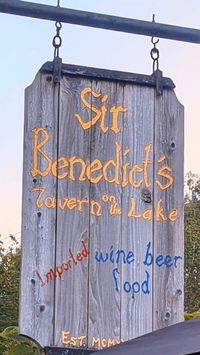 Sir
Benedict's
Tavern on the Lake
Imported wine beer
food
EST.